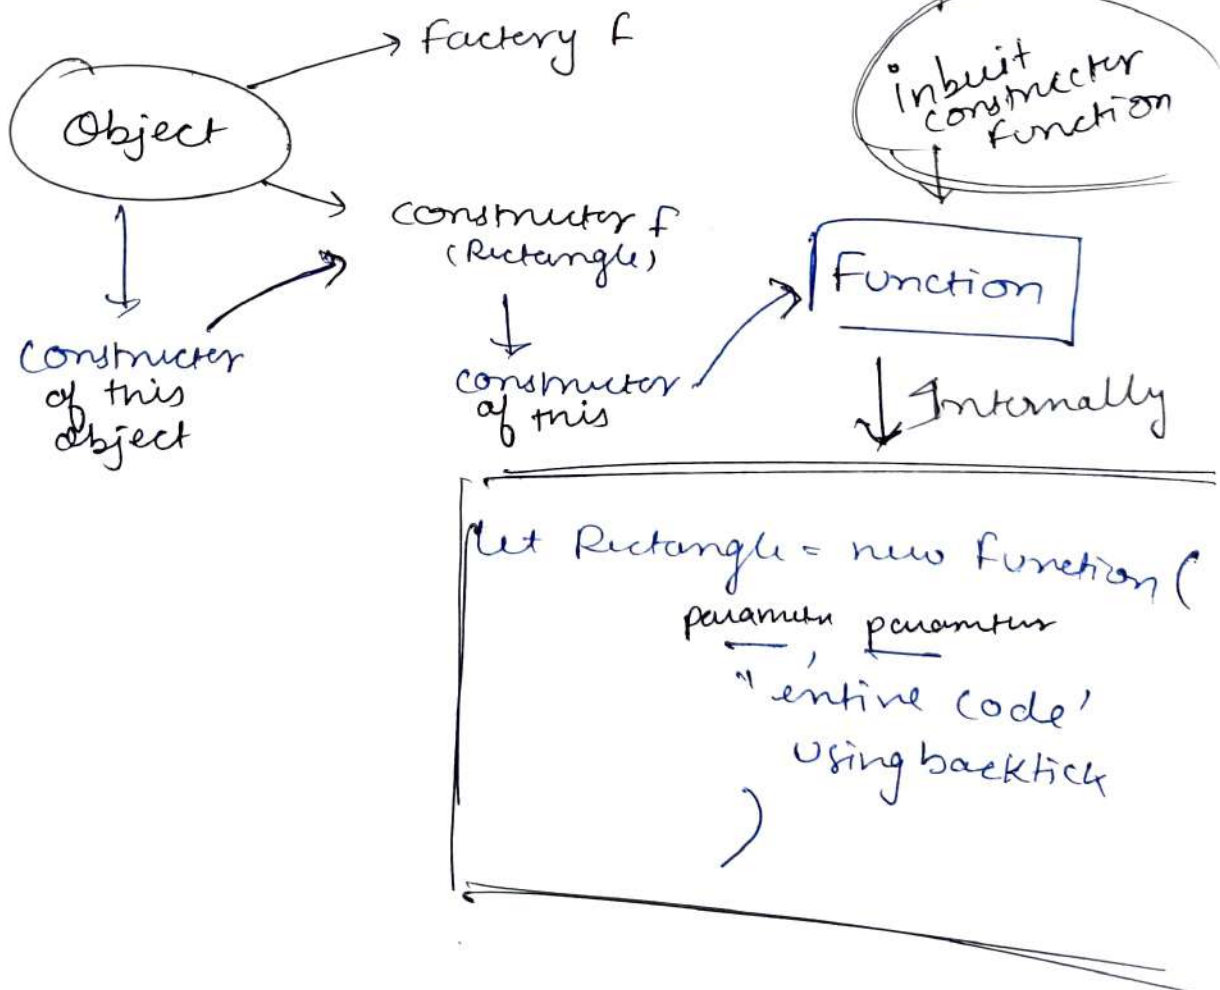 Factery f
Object
inbuit
constructer
function
Constructer f
(Rectangle)
Function
Constructer
of this
object
constructer
of this
Internally
let Rectangle = new Function (
parameter , parameters
" entire code '
using backtick
)